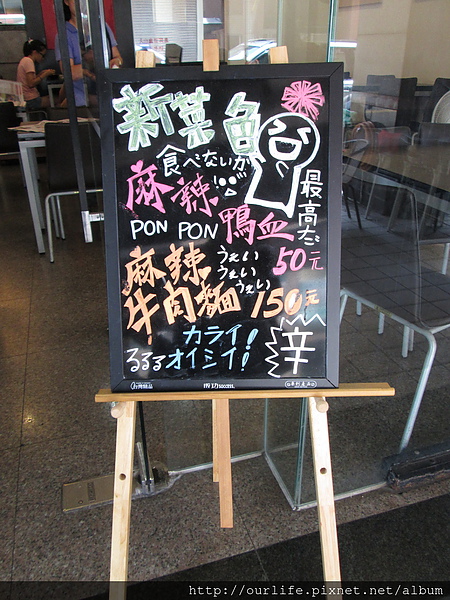 新菜色
食べないか
麻辣
最高だ
PON PON 鴨血
50元
麻辣
うぇい
うぇい
うぇい
牛肉麵 150元
カライ!
辛
るるるオイシイ!
http://ourlife.pixnet.net/album